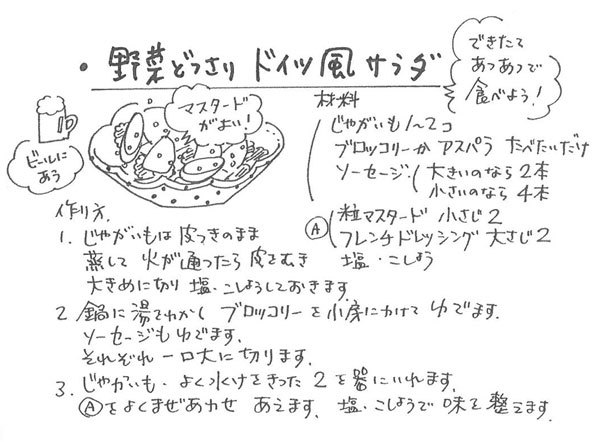 ・野菜どっさり ドイツ風サラダ
できたて
あつあつで
食べよう!
マスタード
がよい!
ビールに
あう
材料
じゃがいも 1〜2コ
ブロッコリーか アスパラ たべたいだけ
ソーセージ 大きいのなら 2本
小さいのなら 4本
Ⓐ 粒マスタード 小さじ2
フレンチドレッシング 大さじ2
塩・こしょう
作り方
1. じゃがいもは 皮つきのまま
蒸して 火が通ったら 皮をむき
大きめに切り 塩・こしょうしておきます.
2 鍋に湯をわかし ブロッコリーを小房にわけて ゆでます.
ソーセージもゆでます.
それぞれ 一口大に切ります.
3. じゃがいも・よく水けをきった 2を器にいれます.
Ⓐをよくまぜあわせ あえます. 塩・こしょうで 味を整えます.